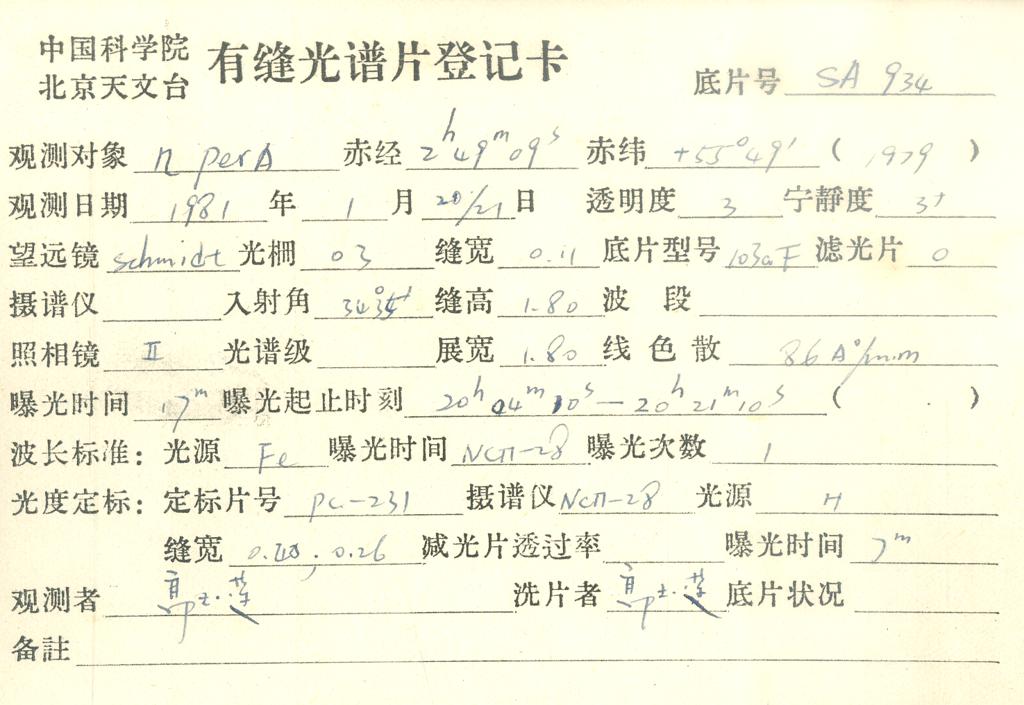 中国科学院 有缝光谱片登记卡
北京天文台 底片号 SA 934
观测对象 η per A 赤经 2ʰ49ᵐ09ˢ 赤纬 +55°49′ ( 1979 )
观测日期 1981 年 1 月 20/21 日 透明度 3 宁静度 3⁺
望远镜 schmidt 光栅 03 缝宽 0.11 底片型号 103aF 滤光片 0
摄谱仪 入射角 缝高 1.80 波 段
照相镜 II 光谱级 展宽 1.80 线色散 86 A°/mm
曝光时间 17ᵐ 曝光起止时刻 20ʰ04ᵐ10ˢ—20ʰ21ᵐ10ˢ ( )
波长标准: 光源 Fe 曝光时间 NCП-28 曝光次数 1
光度定标: 定标片号 PC-231 摄谱仪 NCП-28 光源 H
缝宽 ; 0.26 减光片透过率 曝光时间 7ᵐ
观测者 洗片者 底片状况
备註